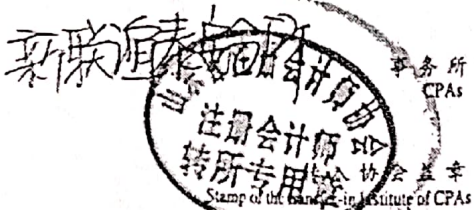 新联谊
事务所
CPAs
山东省注册会计师协会
注册会计师
转所专用章
协会盖章
Stamp of the transfer-in Institute of CPAs